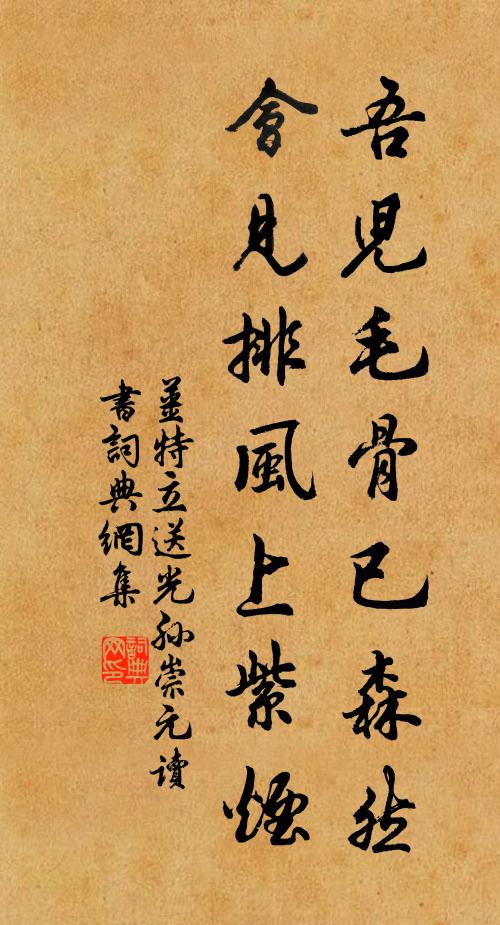 吾兒毛骨已森然
會見排風上紫煙
姜特立送光孫崇元讀
書詞典網集
詞典
网印